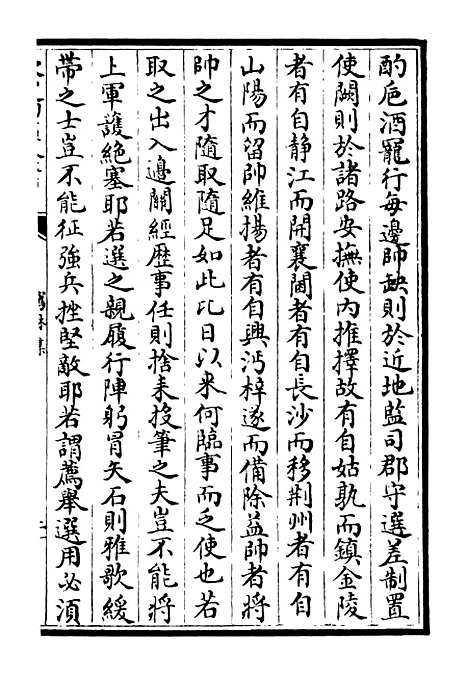 酌巵酒寵行每邊帥缺則於近地監司郡守選差制置
使闕則於諸路安撫使内推擇故有自姑孰而鎮金陵
者有自静江而開襄閫者有自長沙而移荆州者有自
山陽而留帥維揚者有自興沔梓遂而備除益帥者將
帥之才隨取隨足如此比日以来何臨事而乏使也若
取之出入邊關經歴事任則捨耒投筆之夫豈不能將
上軍護絶塞耶若選之親履行陣躬冐矢石則雅歌緩
帶之士豈不能征強兵挫堅敵耶若謂薦舉選用必湏